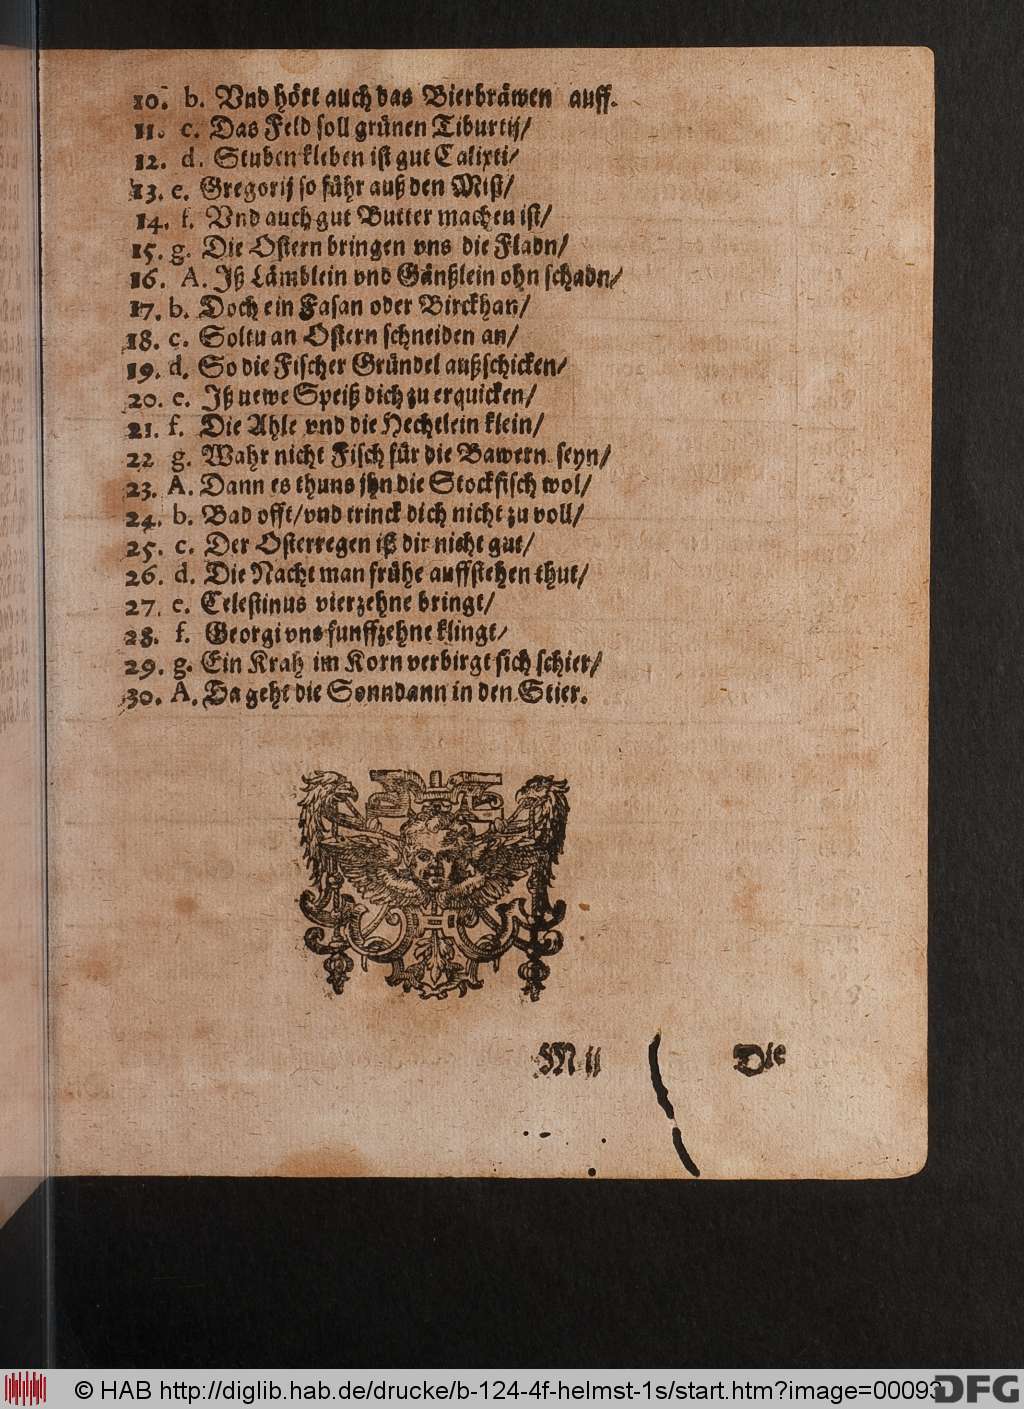 10. b. Vnd hört auch das Bierbräwen auff.
11. c. Das Feld soll grünen Tiburtij/
12. d. Stuben kleben ist gut Calixti/
13. e. Gregorij so führ auß den Mist/
14. f. Vnd auch gut Butter machen ist/
15. g. Die Ostern bringen vns die Fladn/
16. A. Iß Lämblein vnd Gänßlein ohn schadn/
17. b. Doch ein Fasan oder Birckhan/
18. c. Soltu an Ostern schneiden an/
19. d. So die Fischer Gründel außschicken/
20. e. Iß newe Speiß dich zu erquicken/
21. f. Die Ahle vnd die Hechtlein klein/
22 g. Wahr nicht Fisch für die Bawern seyn/
23. A. Dann es thuns jhn die Stockfisch wol/
24. b. Bad offt/vnd trinck dich nicht zu voll/
25. c. Der Osterregen iß dir nicht gut/
26. d. Die Nacht man frühe auffstehen thut/
27. e. Celestinus vierzehne bringt/
28. f. Georgi vns funffzehne klingt/
29. g. Ein Krah im Korn verbirgt sich schier/
30. A. Da geht die Sonn dann in den Stier.
M ij Die
© HAB http://diglib.hab.de/drucke/b-124-4f-helmst-1s/start.htm?image=00093
DFG